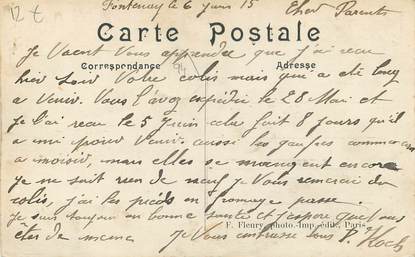 12 t
Fontenay le 6 Juin 15 Cher Parents
Carte Postale
Je Vient Vous apprendre que j'ai recu
Correspondance Adresse
hier soir Votre colis mais qui a été long
a Venir. Vous l'avez expédié le 28 Mai et
je l'ai recu le 5 Juin cela fait 8 jours qu'il
a mi pour Venir. aussi les gaufres commencer
a moisir, mais elles se mangent encore
je ne sait rien de neuf je Vous remerci du
colis, j'ai les pieds en fromage passe.
F. Fleury, photo.-Imp.-édit., Paris
je suis toujour en bonne santé et j'espere que Vous
êtes de meme je Vous embrasse tous P. Koch